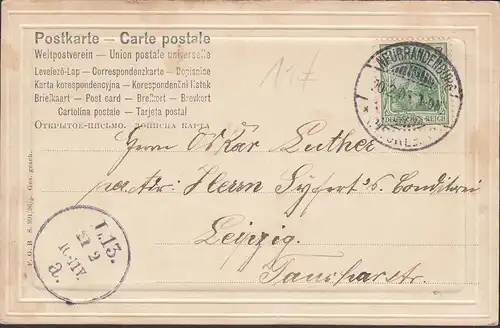 Postkarte - Carte postale
Weltpostverein - Union postale universelle
Levelező-Lap - Correspondenzkarte - Dopisnice
Karta korespondencyjna - Korespondenční lístek
Briefkaart - Post card - Brefkort - Brevkort
Cartolina postale - Tarjeta postal
Открытое-письмо. дописна карта
NEUBRANDENBURG
DEUTSCHES REICH
Herrn Oskar Luther
per Adr: Herrn Syfert's Conditorei
Leipzig.
Tauchaerstr.
L.13.
21 2
10-11V.
a.
Ges. gesch.